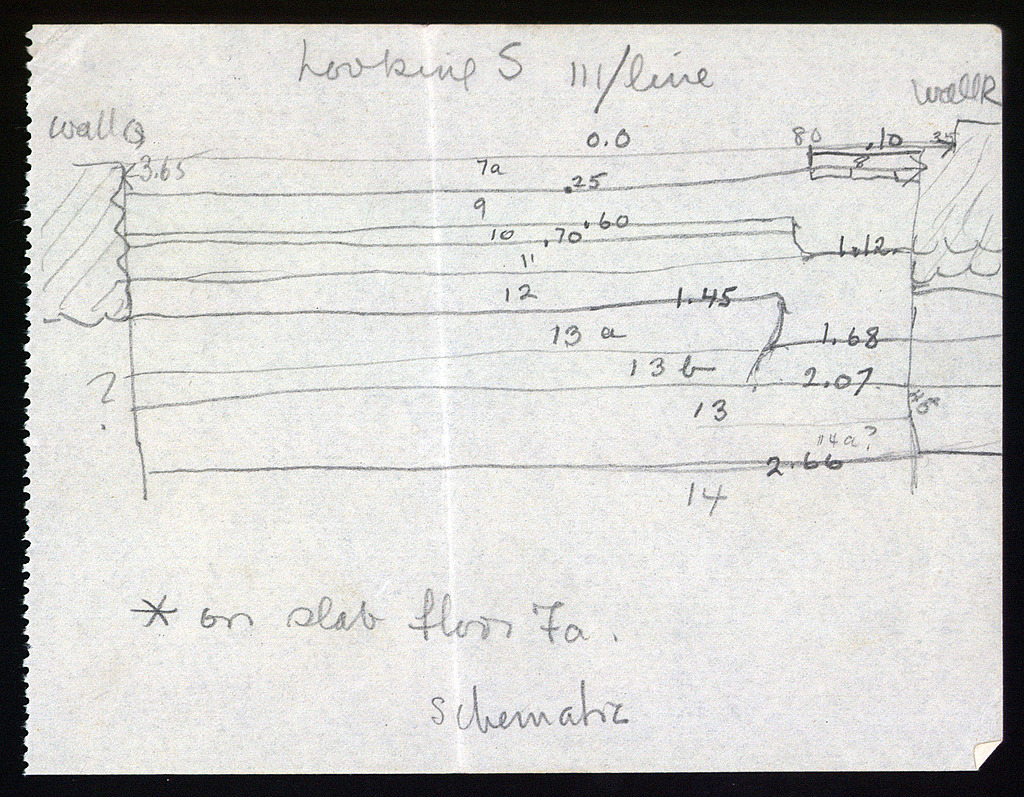 Looking S III/line
Wall R
Wall Q
0.0 80 .10 35
3.65 7a 8
.25
9
.60
10 .70
1.12
11
12 1.45
13 a 1.68
13 b
2.07
?
13 45
14a?
2.66
14
* on slab floor 7a.
Schematic